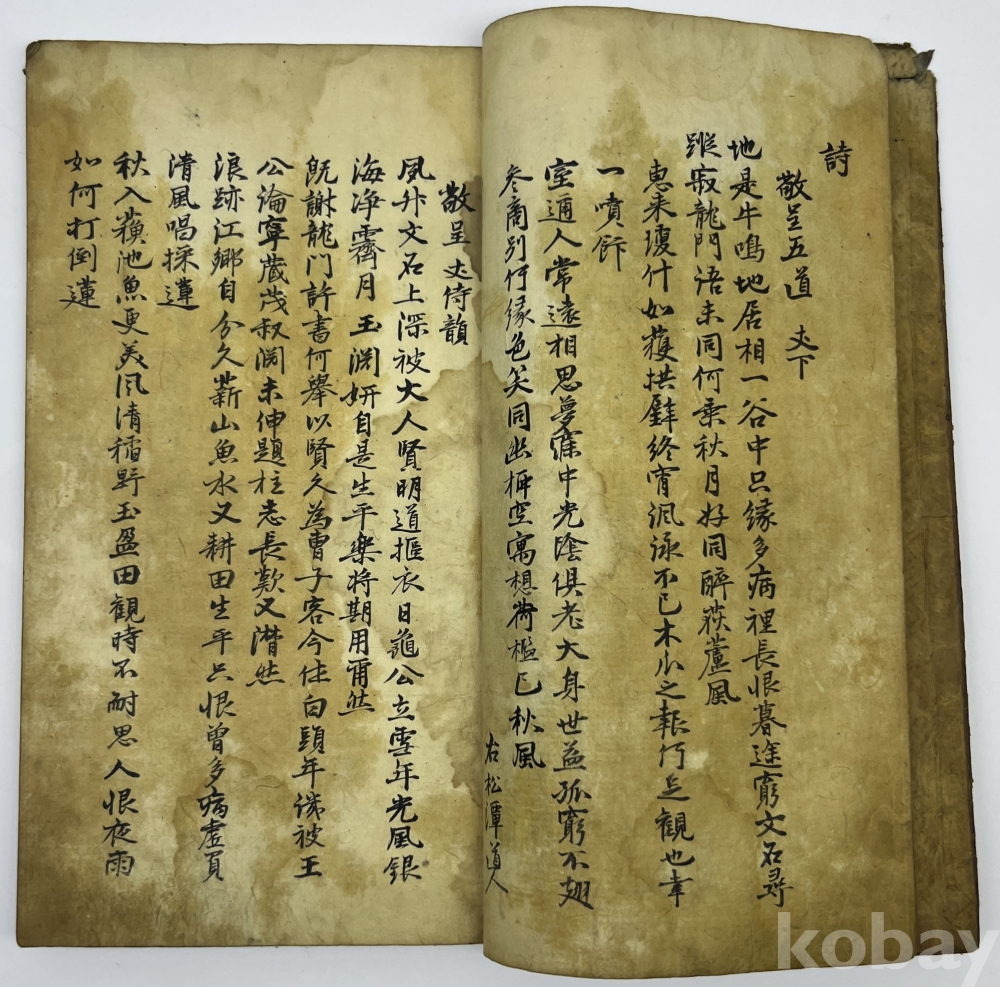 詩
敬呈五道 丈下
地是牛鳴地居相一谷中只緣多病裡長恨暮途窮文石尋
蹤寂龍門語未同何乘秋月好同醉荻蘆風
惠來瓊什如獲拱璧終宵諷泳不已木瓜之報何足觀也幸
一噴飯
室邇人常遠相思夢寐中光陰俱老大身世益孤窮不趐
參商別何緣色笑同幽棲空寓想荷檻已秋風
右松潭道人
敬呈 丈侍韻
夙升文石上深被大人賢明道摳衣日龜公立雪年光風銀
海净霽月玉淵姸自是生平樂將期用爾然
旣謝龍門許書何擧以賢久為曹子客今佳白頭年徙被王
公論寧蔵茂叔淵未伸題柱志長歎又潸然
浪跡江鄉自分久薪山魚水又耕田生平只恨曾多病虛負
淸風唱採蓮
秋入蘋池魚更美風淸稻野玉盈田觀時不耐思人恨夜雨
如何打倒蓮
kobay